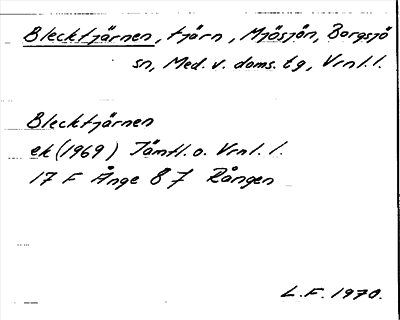 Blecktjärnen, tjärn, Mjösjön, Borgsjö
sn, Med. v. doms. tg, Vrnl. l.
Blecktjärnen
ek (1969) Jämtl. o. Vrnl. l.
17 F Ånge 8 7 Rången
L.F. 1970.